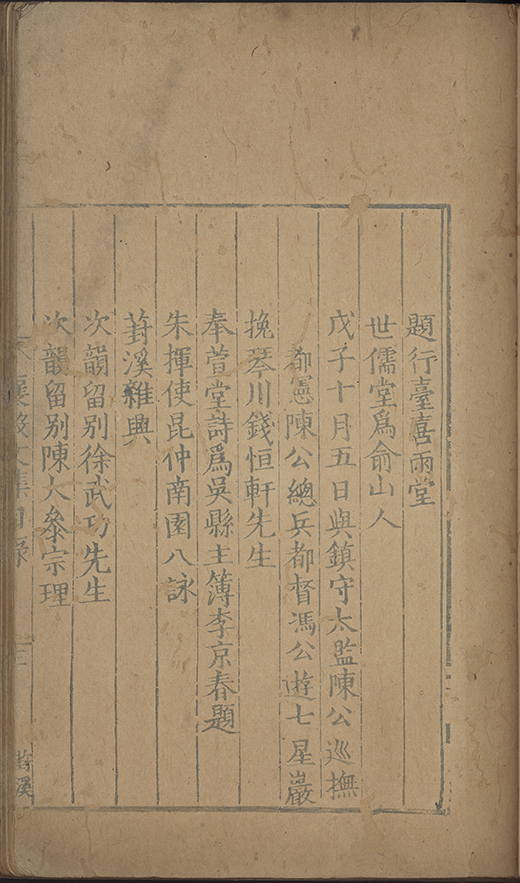 題行臺喜雨堂
世儒堂爲俞山人
戊子十月五日與鎮守太監陳公巡撫
都憲陳公總兵都督馮公遊七星巖
挽琴川錢恒軒先生
奉萱堂詩爲吳縣主簿李京春題
朱揮使昆仲南園八詠
葑溪雜興
次韻留別徐武功先生
次韻留別陳大參宗理
襄毅文集目錄
葑溪